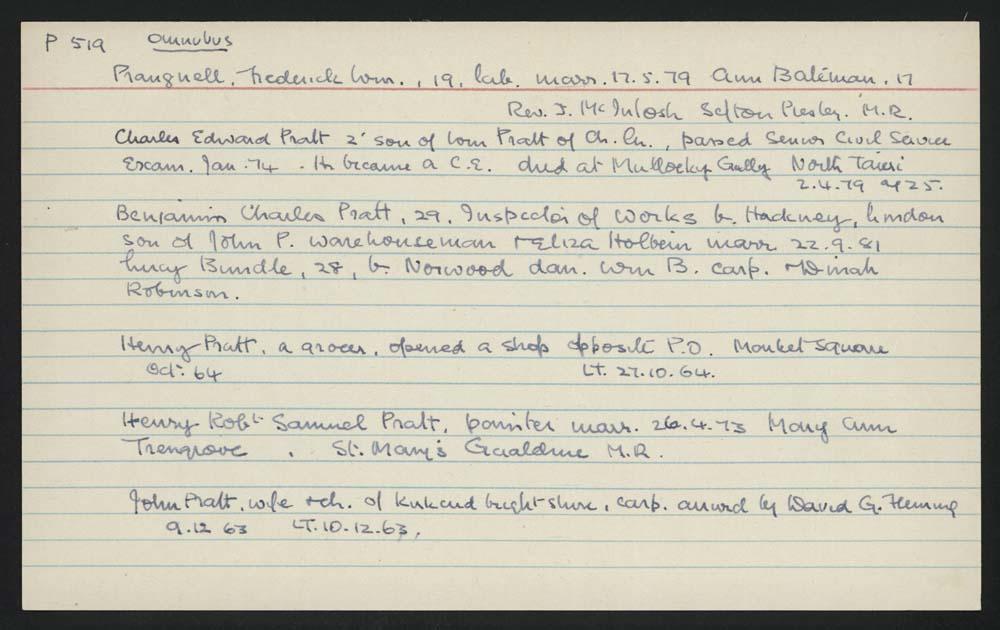 P 519 Omnibus
Prangnell, Frederick Wm., 19, lab. marr. 17.5.79 Ann Bateman, 17
Rev. J. McIntosh Sefton Presby. M.R.
Charles Edward Pratt 2' son of Wm Pratt of Ch. Ch., passed Senior Civil Service
Exam. Jan. 74. He became a C.E. died at Mullocky Gully North Taieri
2.4.79 ag 25.
Benjamin Charles Pratt, 29, Inspector of Works b. Hackney, London
son of John P. warehouseman + Eliza Holbein marr 22.9.81
Lucy Bundle, 28, b. Norwood dau. Wm B. carp. + Dinah
Robinson.
Henry Pratt, a grocer, opened a shop opposite P.O. Market Square
Oct: 64 LT. 27.10.64.
Henry Robt Samuel Pratt, painter marr. 26.4.73 Mary Ann
Trengrove. St. Mary's Geraldine M.R.
John Pratt, wife + ch. of Kirkcudbrightshire, carp. arrived by David G. Fleming
9.12 63 LT. 10.12.63,